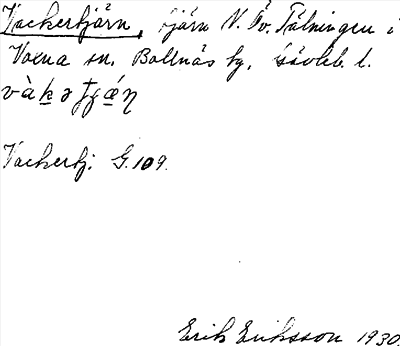 Vackertjärn, tjärn N. Öv. Tälningen i
Voxna sn. Bollnäs kg. Gävleb. l.
vàkətɟǽn
Vackertj. G.109.
Erik Eriksson 1930.